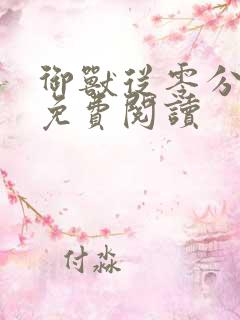 御獸從零分
免費閱讀
付淼